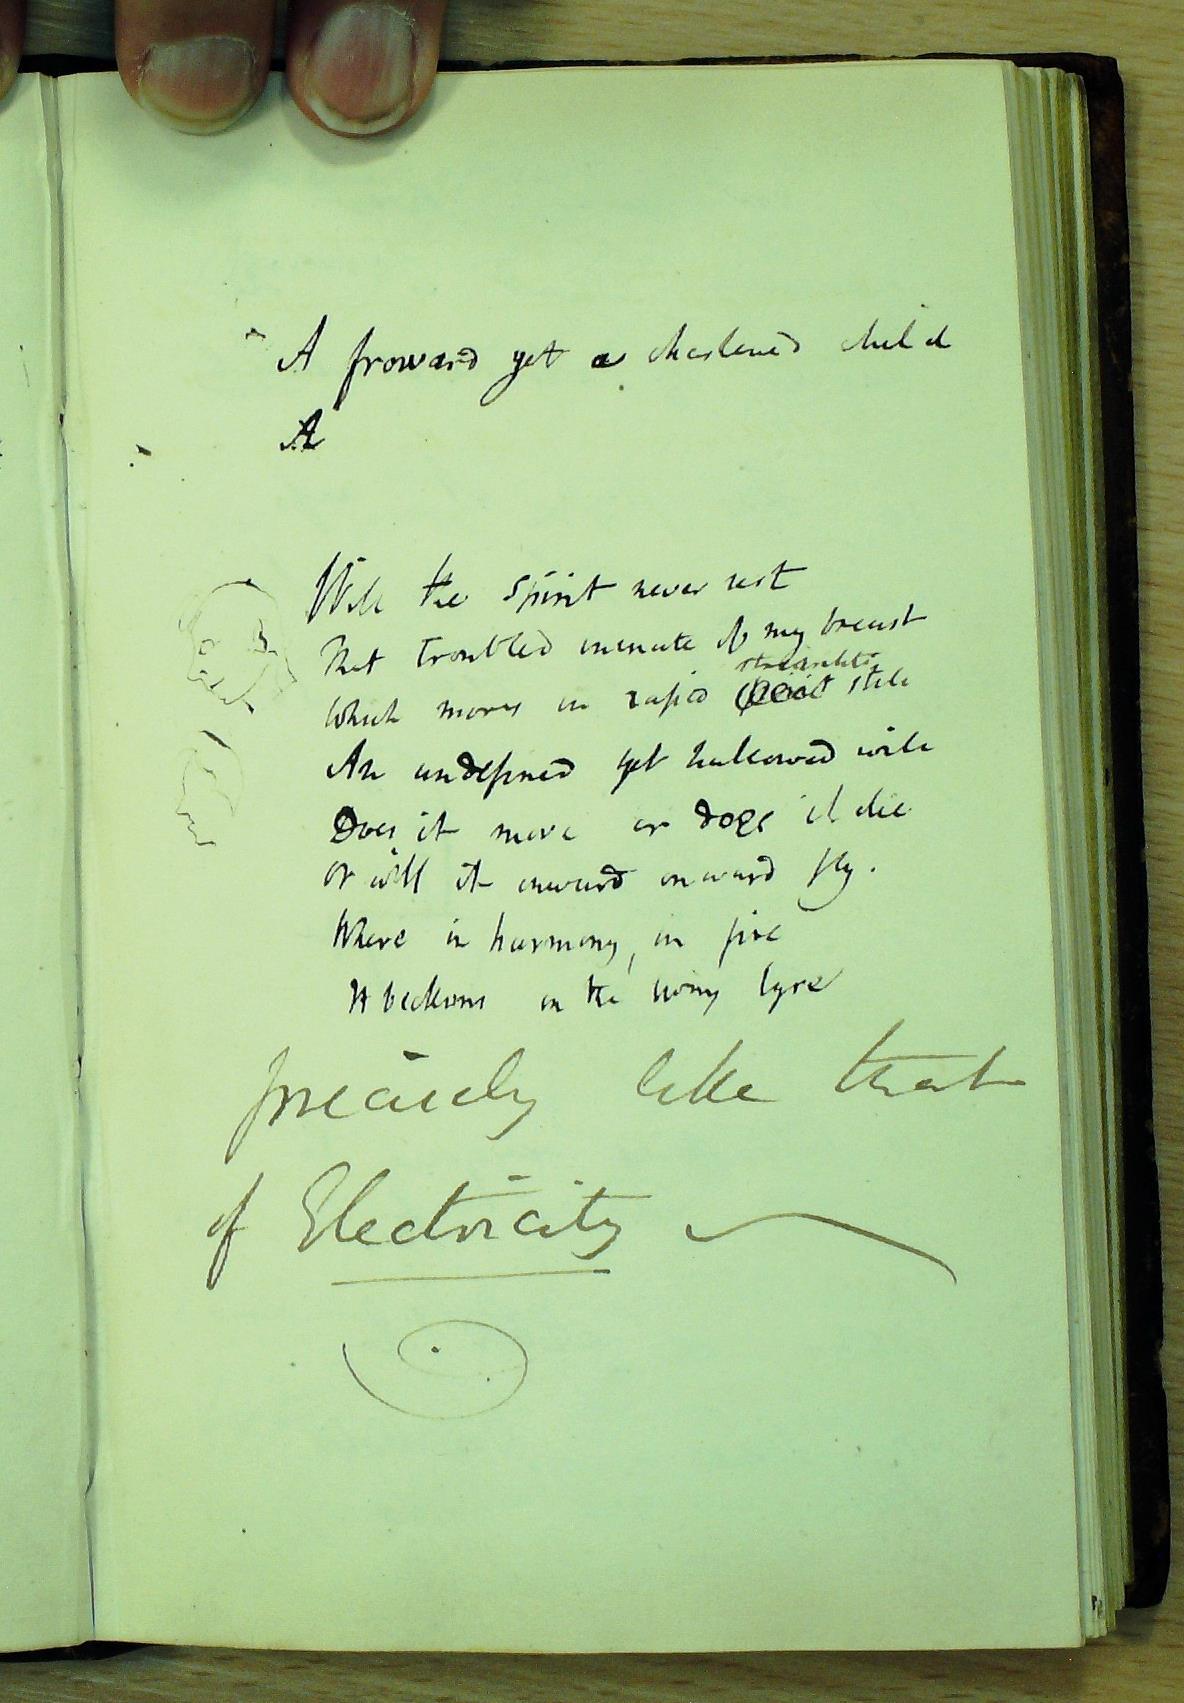 A froward yet a chastened child
A
Will the spirit never rest
That troubled inmate of my breast
streamlets
Which moves in rapid still
An undefined yet hallowed will
Does it move or does it die
or will it inward onward fly.
Where in harmony, in fire
It beckons on the living lyre
precisely like that
of Electricity